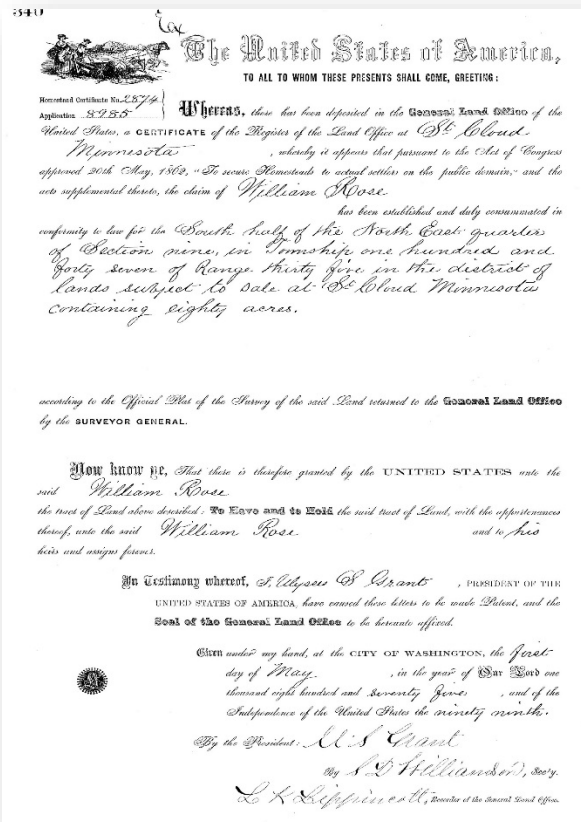 340
The United States of America,
TO ALL TO WHOM THESE PRESENTS SHALL COME, GREETING:
Homestead Certificate No. 2874
Application 8985
Whereas, there has been deposited in the General Land Office of the
United States, a CERTIFICATE of the Register of the Land Office at St Cloud
Minnesota, whereby it appears that pursuant to the Act of Congress
approved 20th May, 1862, "To secure Homesteads to actual settlers on the public domain," and the
acts supplemental thereto, the claim of William Rose
has been established and duly consummated in
conformity to law for the South half of the North East quarter
of Section nine, in Township one hundred and
forty seven of Range thirty five in the district of
lands subject to sale at St Cloud Minnesota
containing eighty acres.
according to the Official Plat of the Survey of the said Land returned to the General Land Office
by the SURVEYOR GENERAL.
Now know ye, That there is therefore granted by the UNITED STATES unto the
said William Rose
the tract of Land above described: To Have and to Hold the said tract of Land, with the appurtenances
thereof, unto the said William Rose and to his
heirs and assigns forever.
In Testimony whereof, I, Ulysses S Grant, PRESIDENT OF THE
UNITED STATES OF AMERICA, have caused these letters to be made Patent, and the
Seal of the General Land Office to be hereunto affixed.
Given under my hand, at the CITY OF WASHINGTON, the first
day of May, in the year of Our Lord one
thousand eight hundred and seventy five, and of the
Independence of the United States the ninety ninth.
By the President: U S Grant
By S D Williamson, Secy.
L K Lippincott, Recorder of the General Land Office.